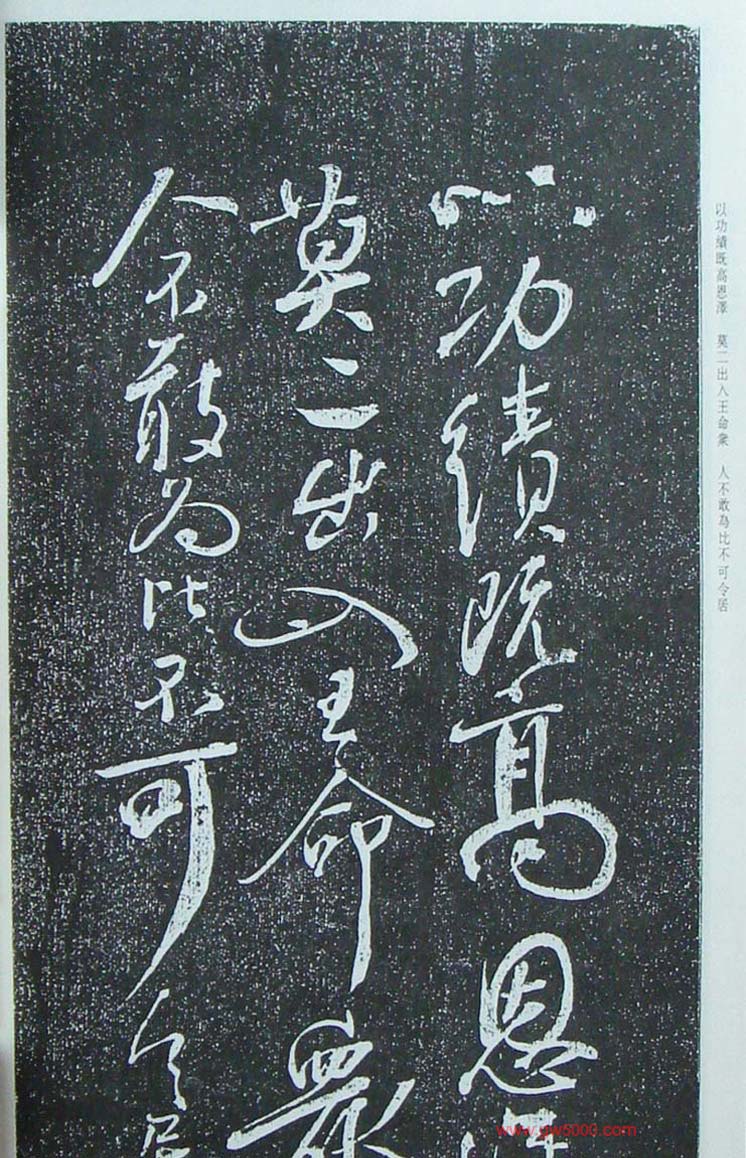 以功績既高恩澤　莫二出入王命衆　人不敢為比不可令居
以功績既高恩澤
莫二出入王命衆
人不敢為比不可令居